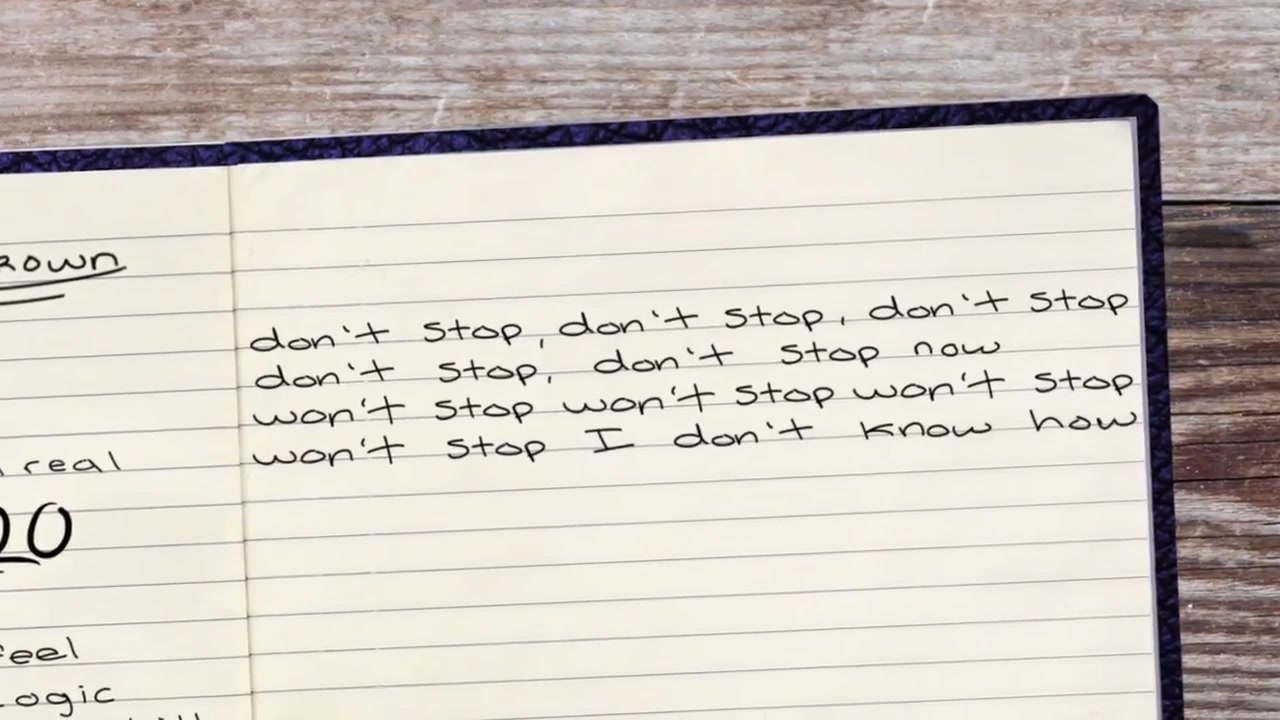 real
feel
don't stop, don't stop, don't stop
don't stop, don't stop now
won't stop won't stop won't stop
won't stop I don't know how